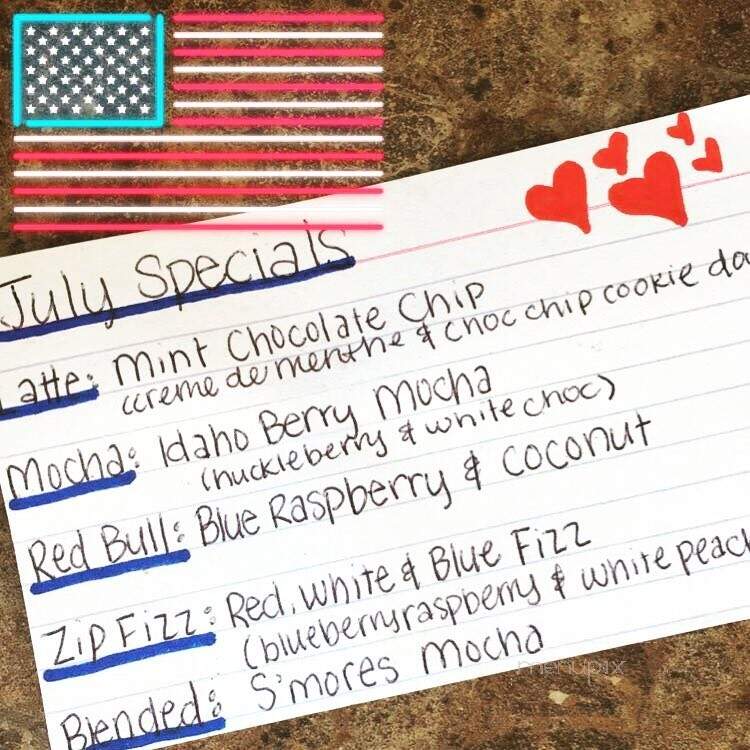 July Specials
Latte: Mint Chocolate Chip
(creme de menthe & choc chip cookie
Mocha: Idaho Berry Mocha
(huckleberry & white choc)
Red Bull: Blue Raspberry & Coconut
Zip Fizz: Red, White & Blue Fizz
(blueberry raspberry & white peach
Blended: S'mores Mocha
menupix